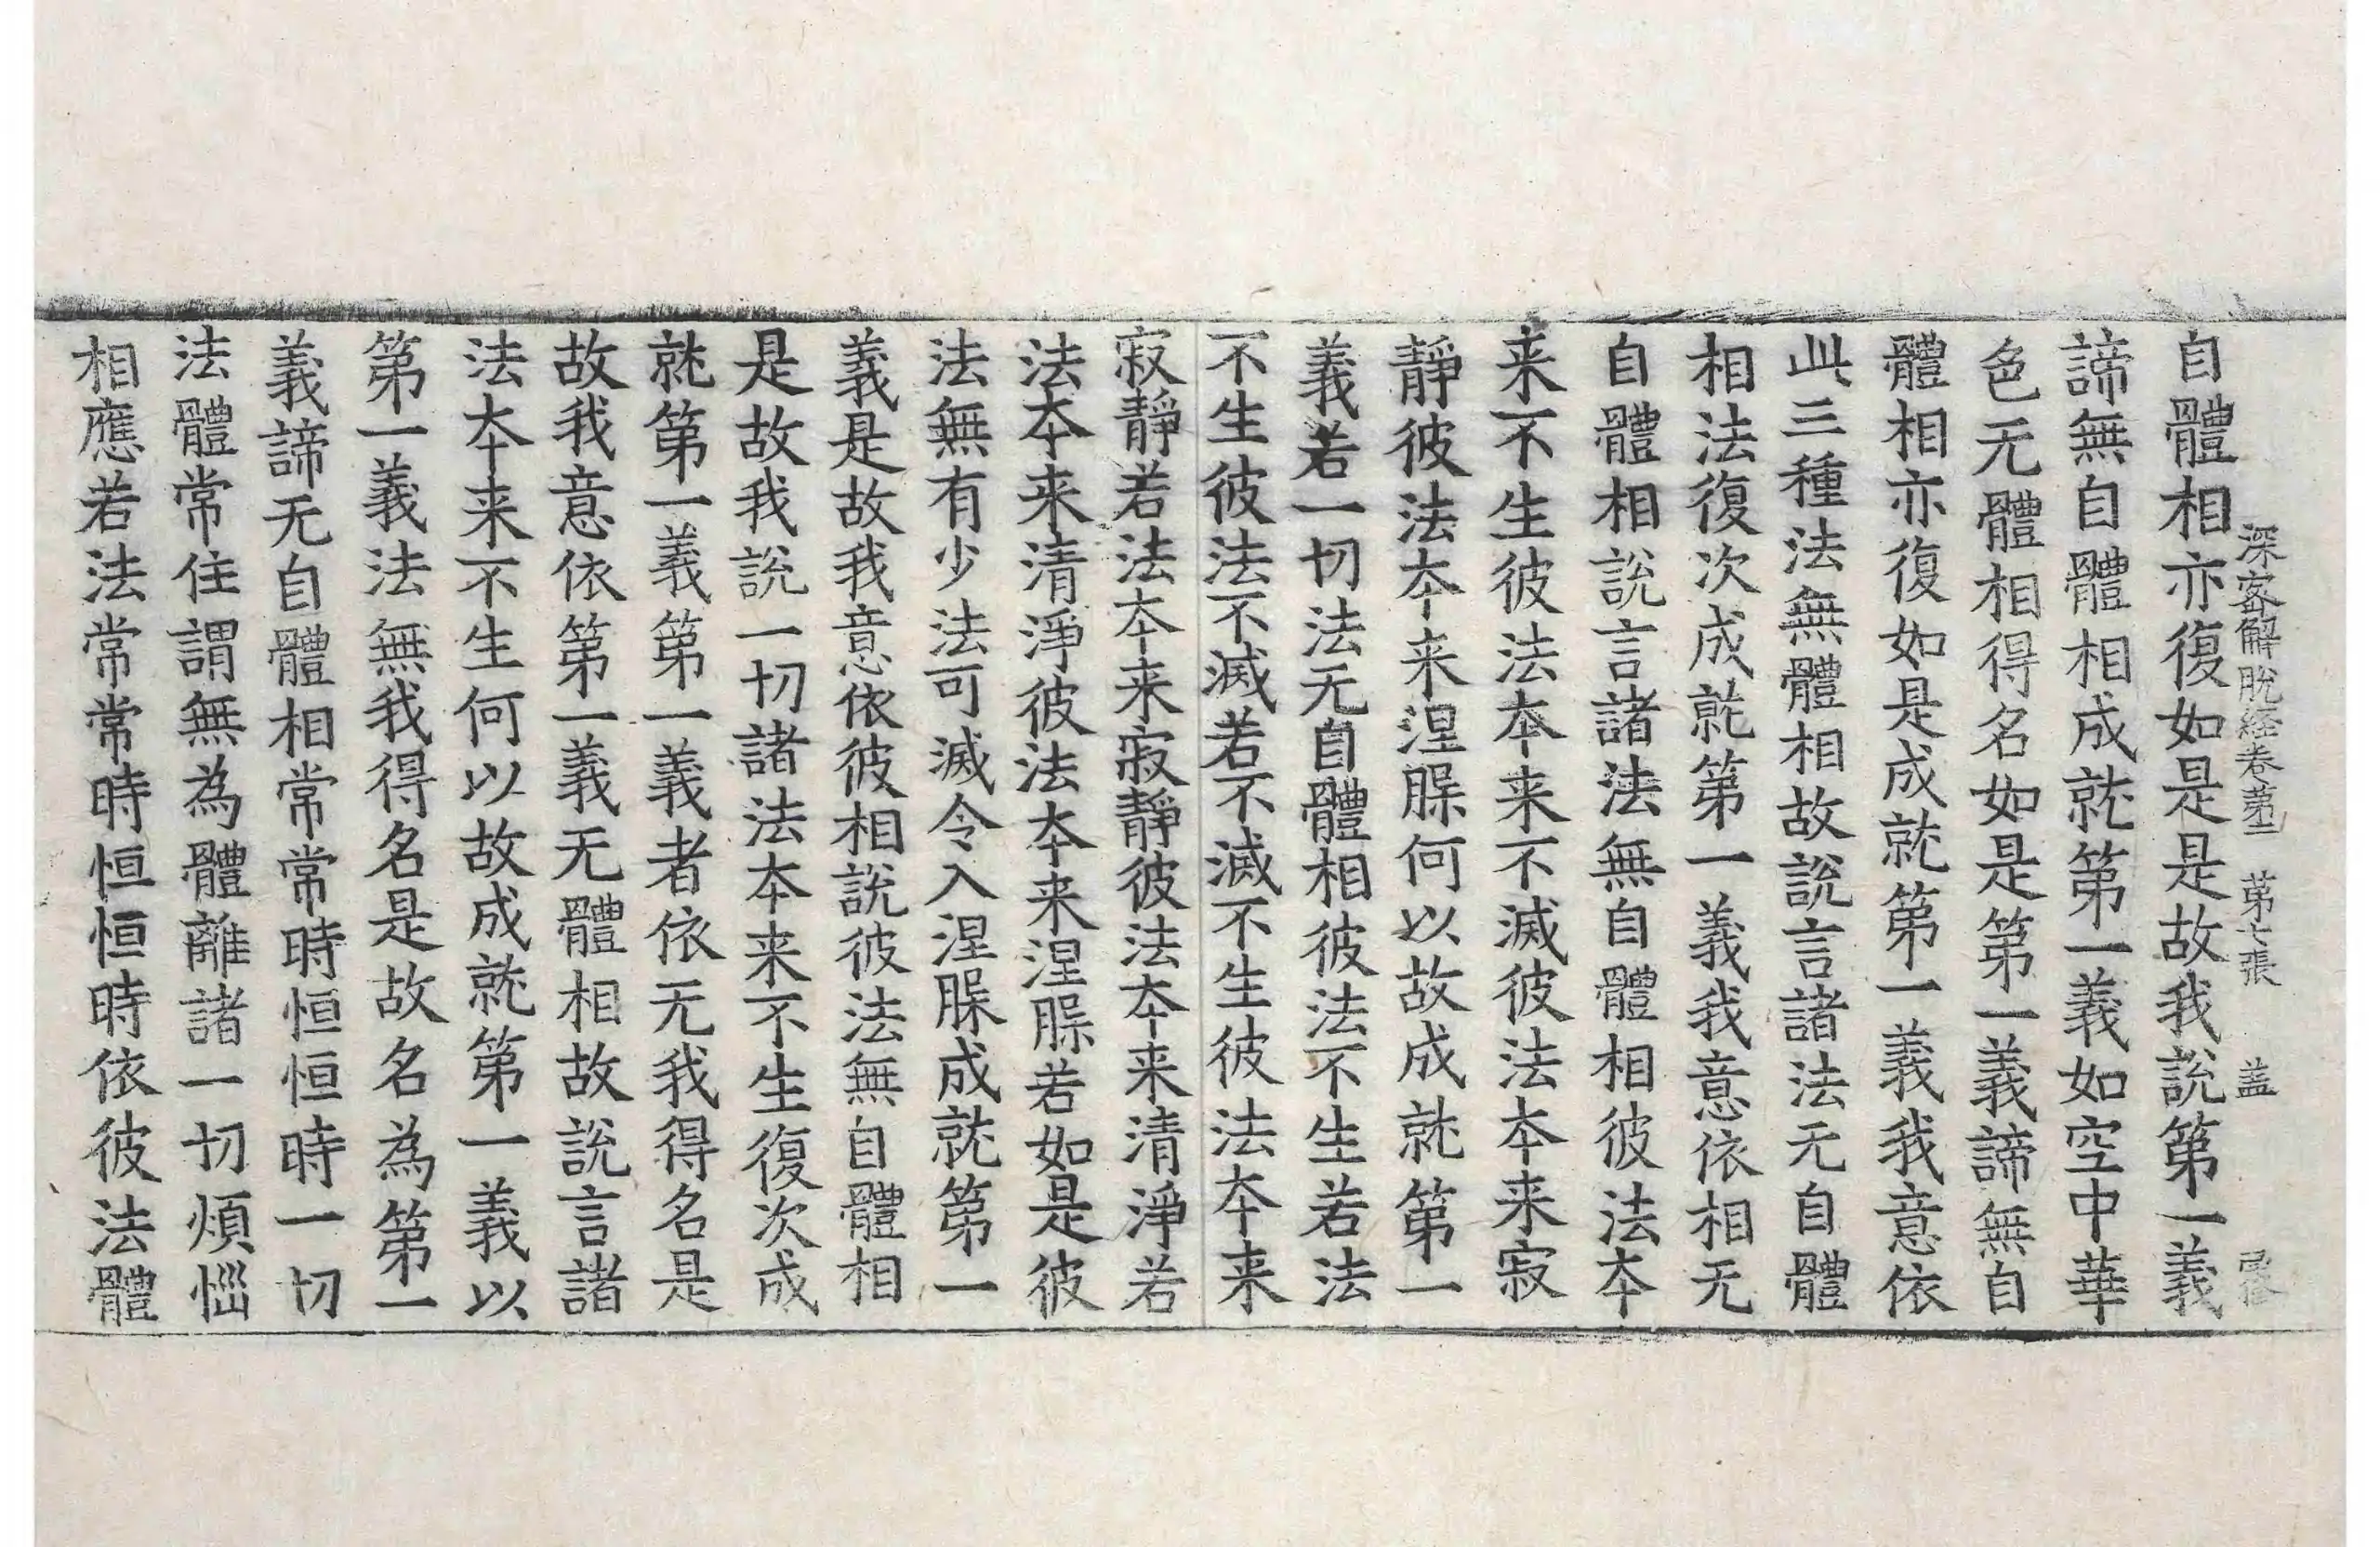 深密解脫経卷苐二 苐七張 盖
自體相亦復如是是故我說第一義
諦無自體相成就第一義如空中華
色无體相得名如是第一義諦無自
體相亦復如是成就第一義我意依
此三種法無體相故說言諸法无自體
相法復次成就第一義我意依相无
自體相說言諸法無自體相彼法夲
来不生彼法夲来不滅彼法夲来寂
靜彼法夲来涅槃何以故成就第一
義若一切法无自體相彼法不生若法
不生彼法不滅若不滅不生彼法夲来
寂靜若法夲来寂靜彼法夲来清淨若
法夲来清淨彼法夲来涅槃若如是彼
法無有少法可滅令入涅槃成就第一
義是故我意依彼相說彼法無自體相
是故我說一切諸法夲来不生復次成
就第一義第一義者依无我得名是
故我意依第一義无體相故說言諸
法夲来不生何以故成就第一義以
第一義法無我得名是故名為第一
義諦无自體相常常時恒恒時一切
法體常住謂無為體離諸一切煩惱
相應若法常常時恒恒時依彼法體